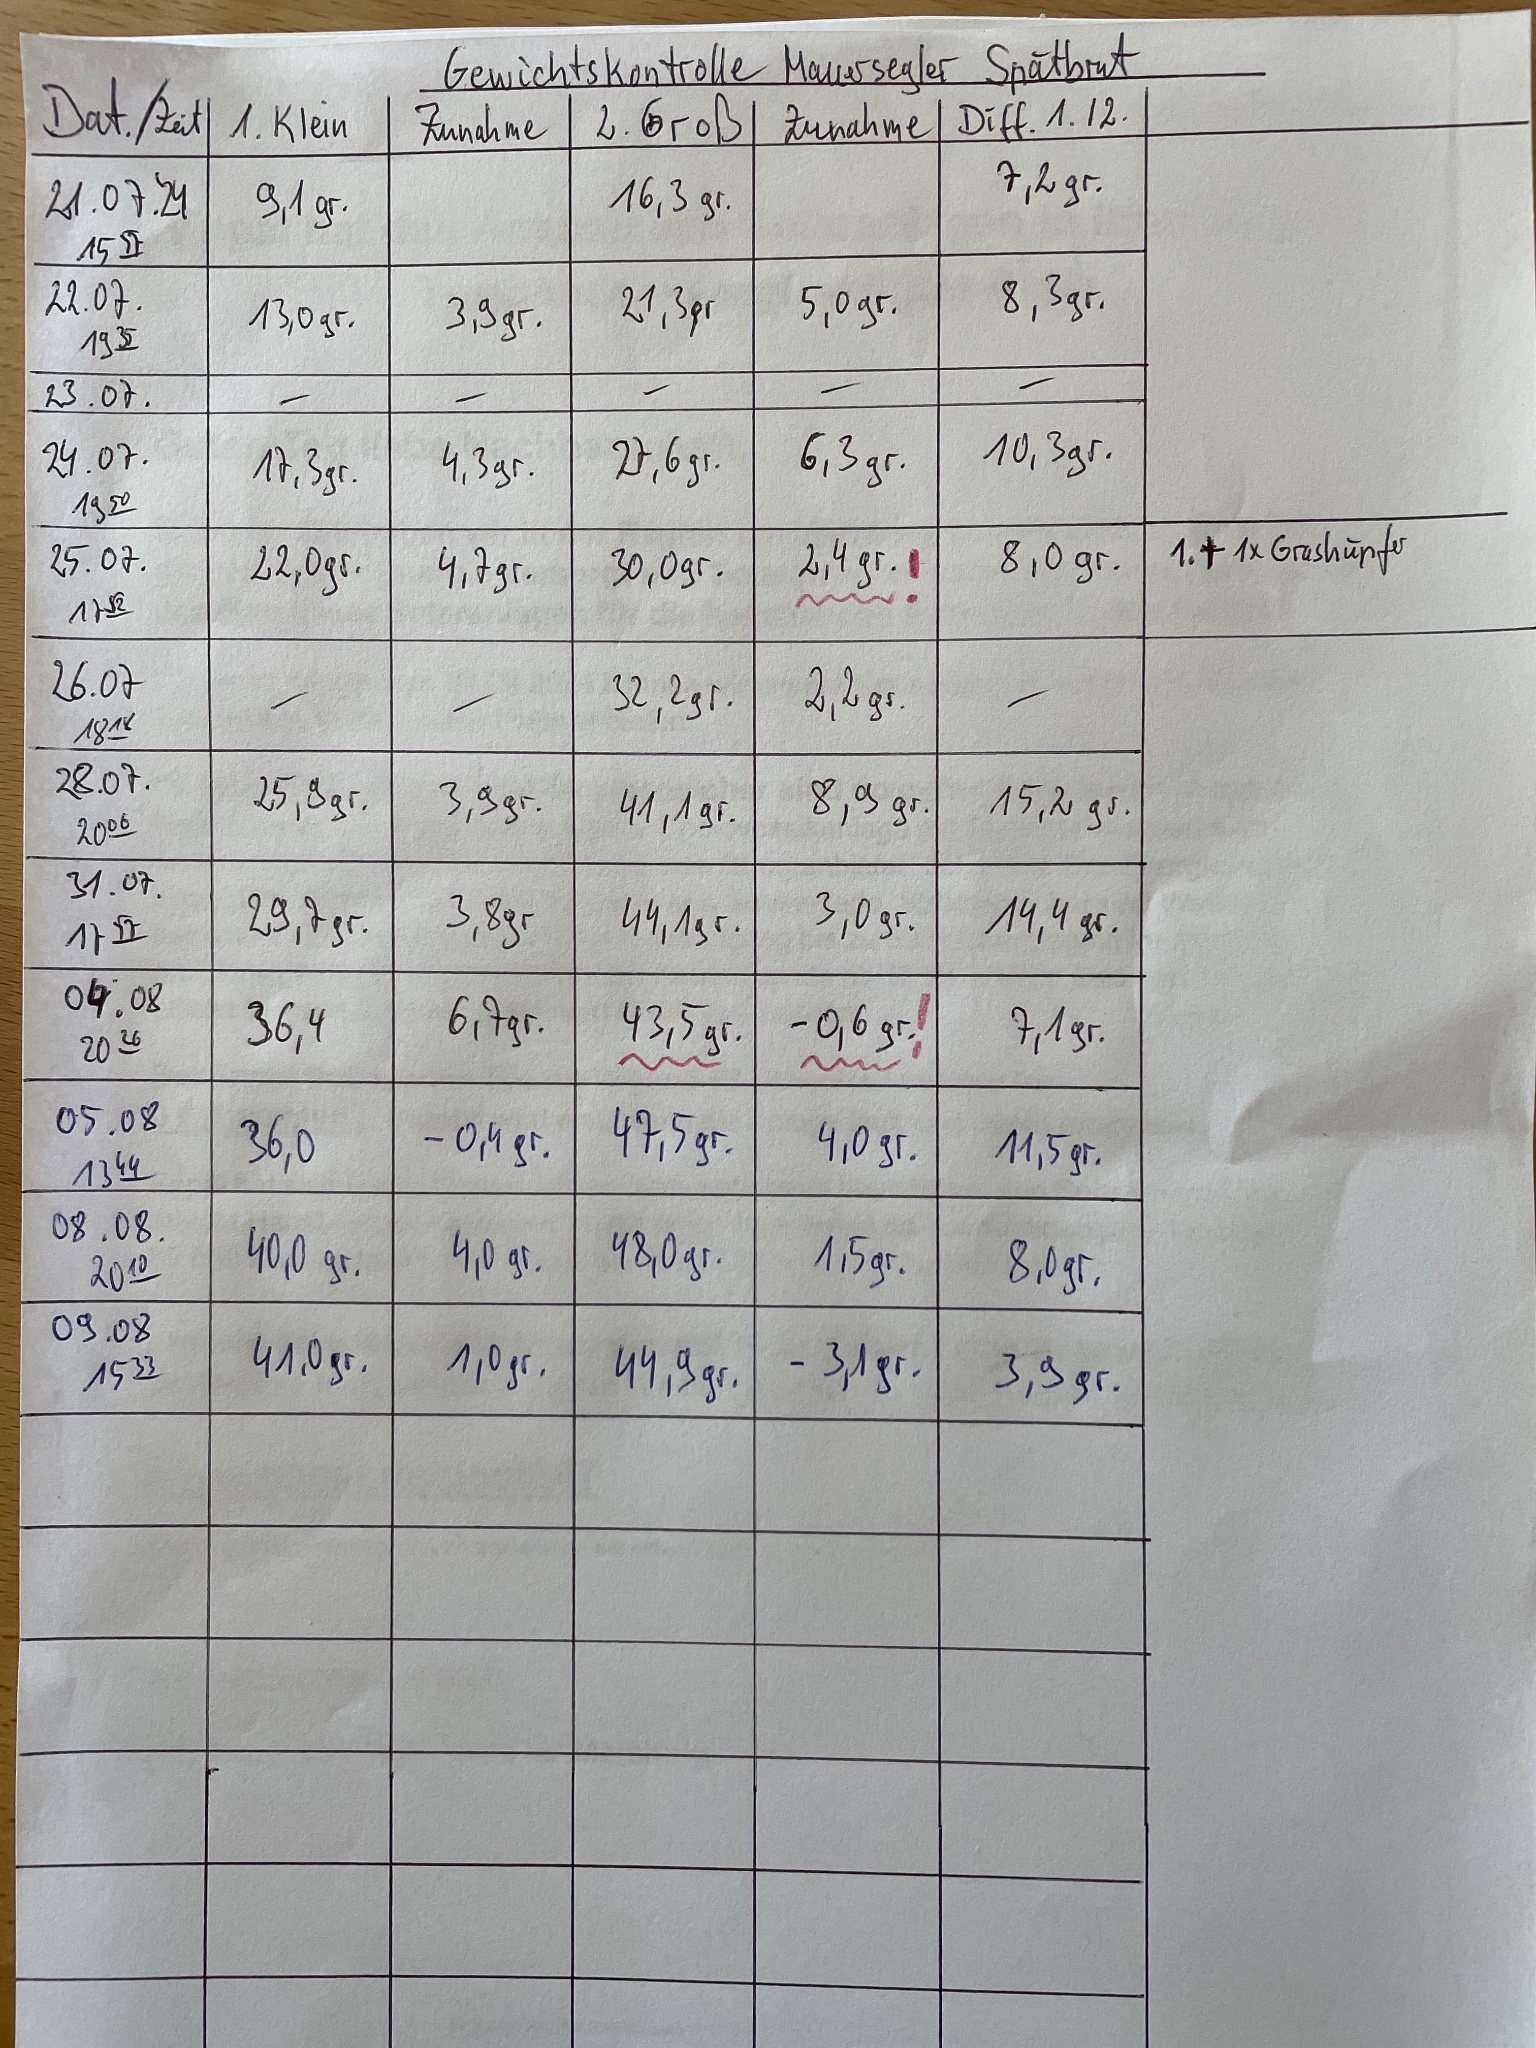 Gewichtskontrolle Mauersegler Spätbrut
Dat./Zeit 1. Klein Zunahme 2. Groß Zunahme Diff. 1./2.
21.07.'24 9,1 gr. 16,3 gr. 7,2 gr.
15
22.07. 13,0 gr. 3,9 gr. 21,3 gr 5,0 gr. 8,3 gr.
19 35
23.07. – – – – –
24.07. 17,3 gr. 4,3 gr. 27,6 gr. 6,3 gr. 10,3 gr.
19 50
25.07. 22,0 gr. 4,7 gr. 30,0 gr. 2,4 gr. ! 8,0 gr. 1. + 1x Grashüpfer
17 52
26.07 – – 32,2 gr. 2,2 gr. –
18 18
28.07. 25,9 gr. 3,9 gr. 41,1 gr. 8,9 gr. 15,2 gr.
20 06
31.07. 29,7 gr. 3,8 gr 44,1 gr. 3,0 gr. 14,4 gr.
17 57
04.08 36,4 6,7 gr. 43,5 gr. -0,6 gr. ! 7,1 gr.
20 26
05.08 36,0 -0,4 gr. 47,5 gr. 4,0 gr. 11,5 gr.
13 44
08.08. 40,0 gr. 4,0 gr. 48,0 gr. 1,5 gr. 8,0 gr.
20 10
09.08 41,0 gr. 1,0 gr. 44,9 gr. -3,1 gr. 3,9 gr.
15 33